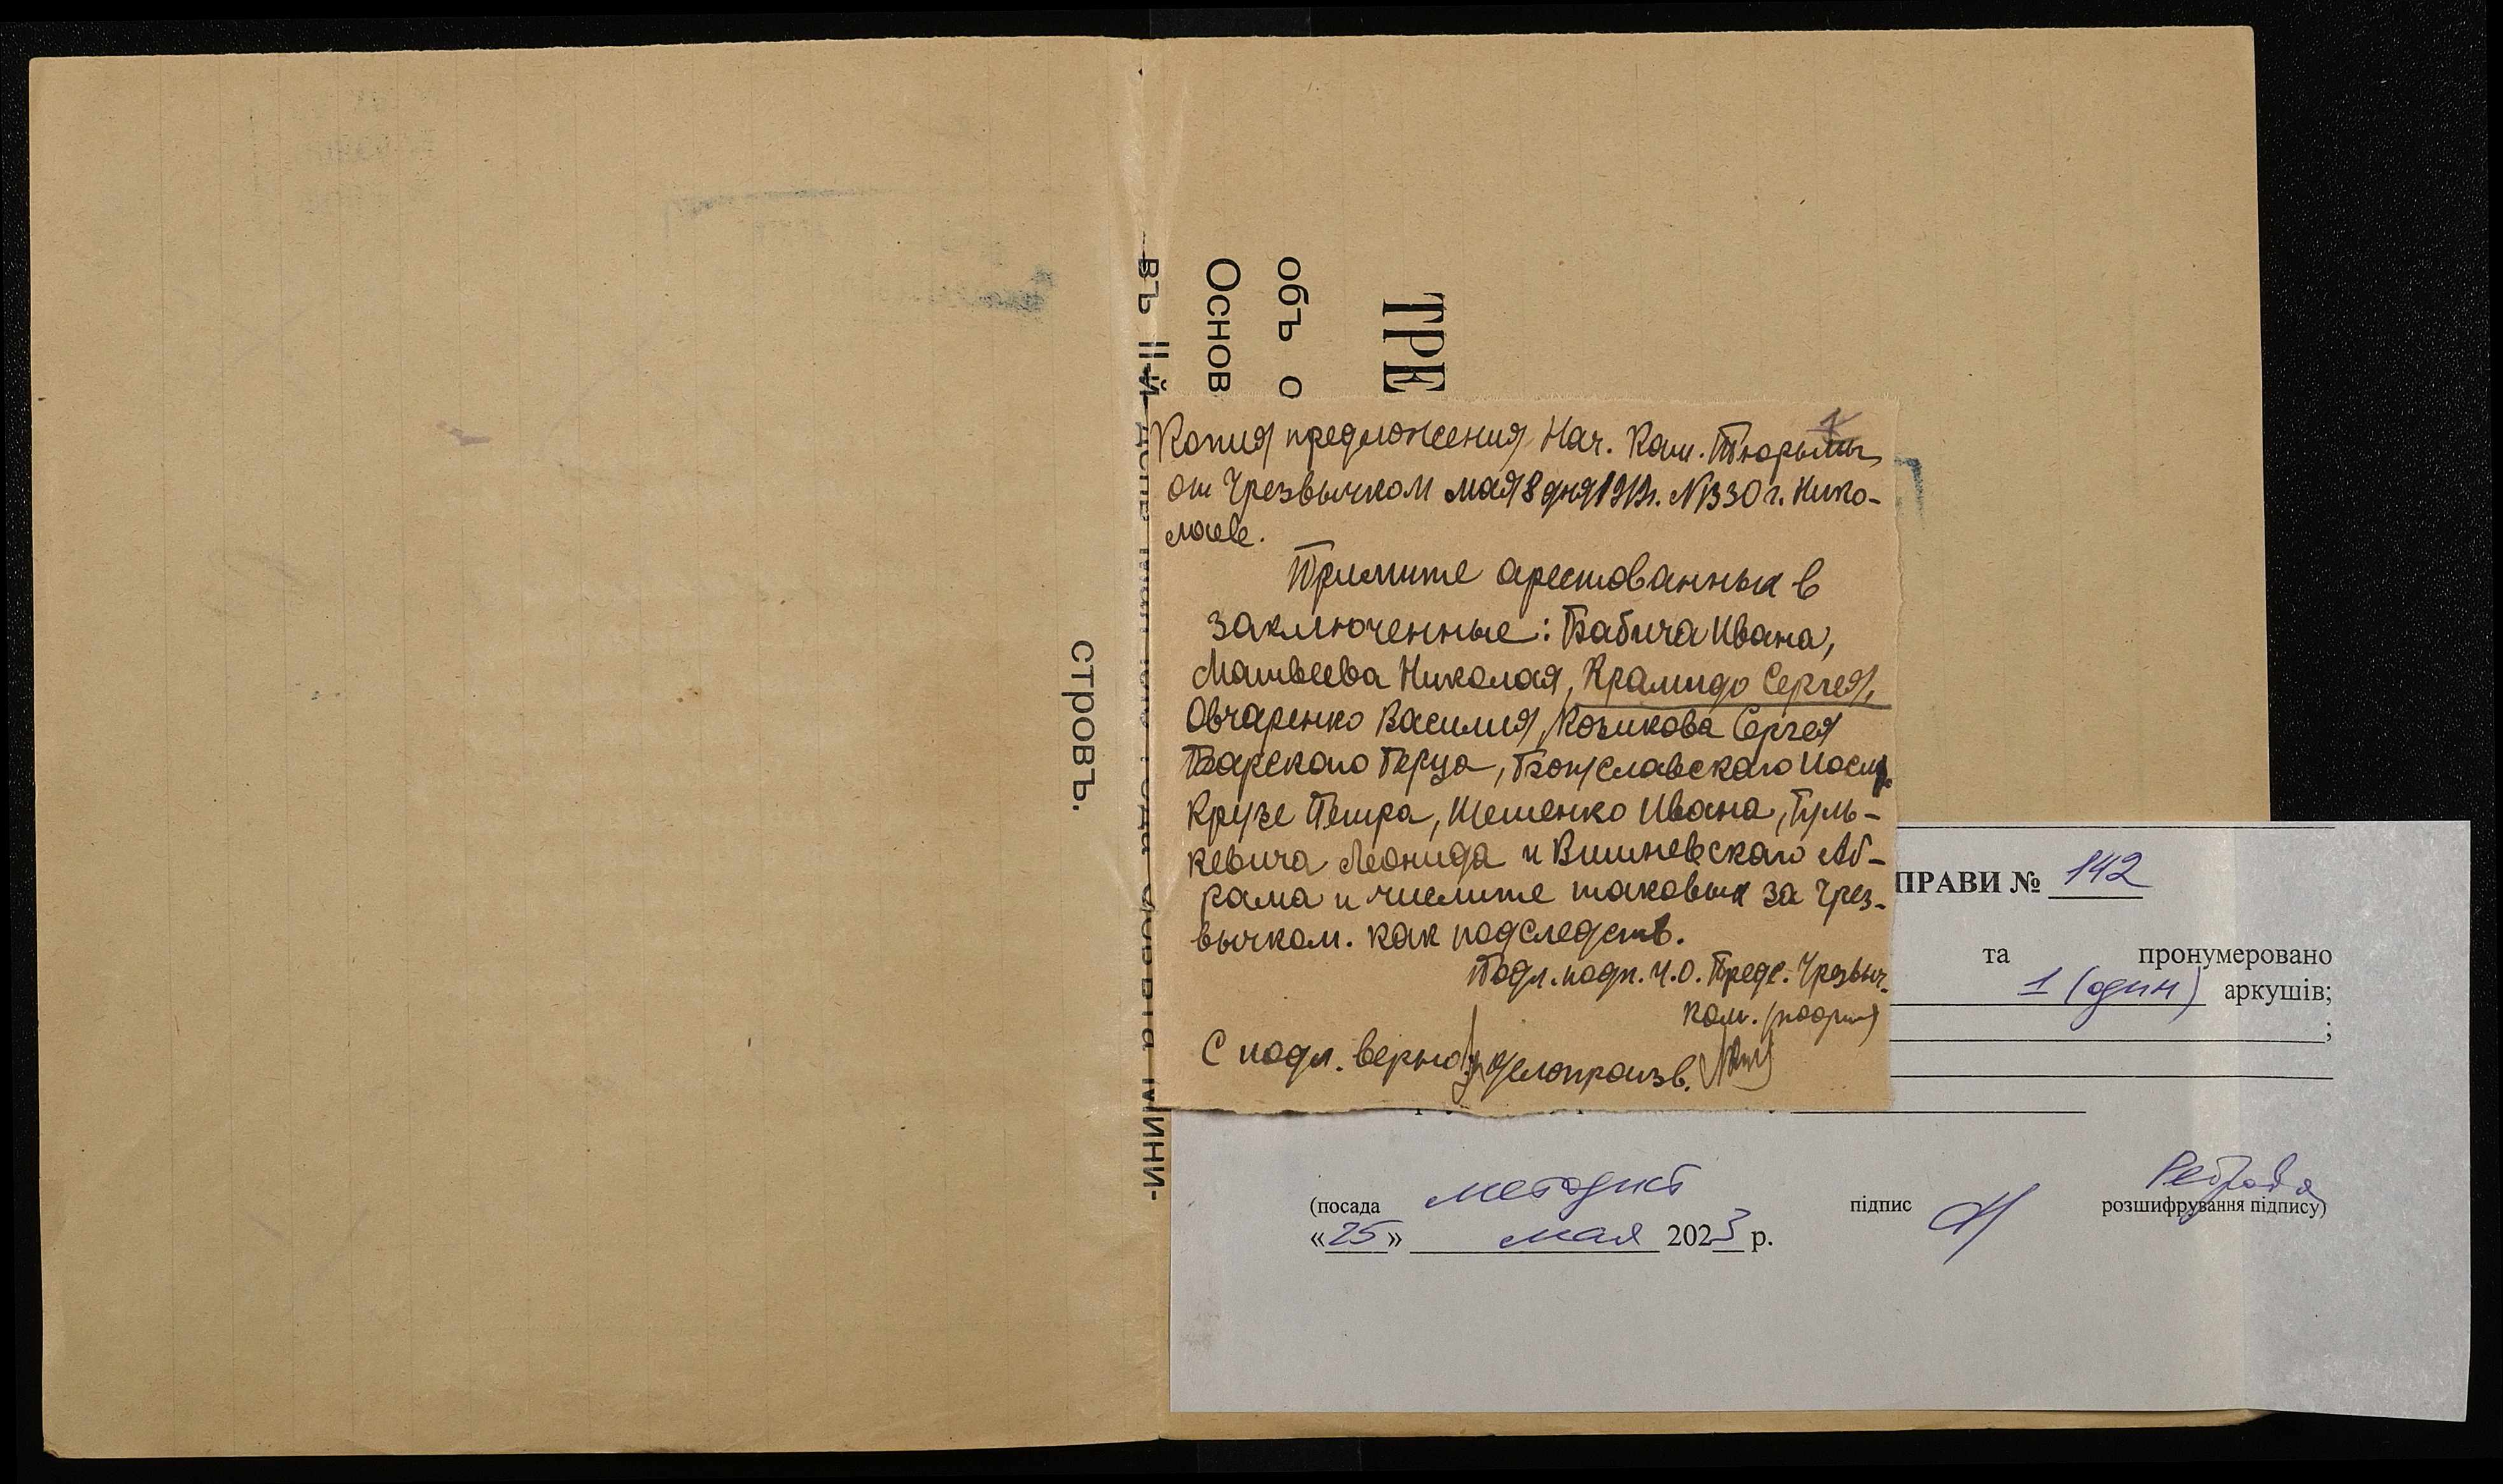 стровъ.
Основ
объ о
ТРЕ
1
Копия предложения Нач. Кат. Тюрьмы
от Чрезвычком мая 8 дня 1919г. N 1330 г. Нико-
лаеве.
Примите арестованных в
заключенные: Бабича Ивана,
Матвеева Николая, Крамидо Сергея,
Овчаренко Василия, Козикова Сергея
Барскаго Герца, Богуславскаго Иосиф.
Крузе Петра, Шешенко Ивана, Гуль-
кевича Леонида и Вишневскаго Аб-
рама и числите таковых за Чрез-
вычком. как подследств.
Подл. подп. И.О. Предс. Чрезвыч.
Ком. (подпись)
С подл. верно: делопроизв.
ПРАВИ № 142
та пронумеровано
1 (один) аркушів;
;
(посада методист підпис розшифрування підпису)
«25» мая 2023 р.